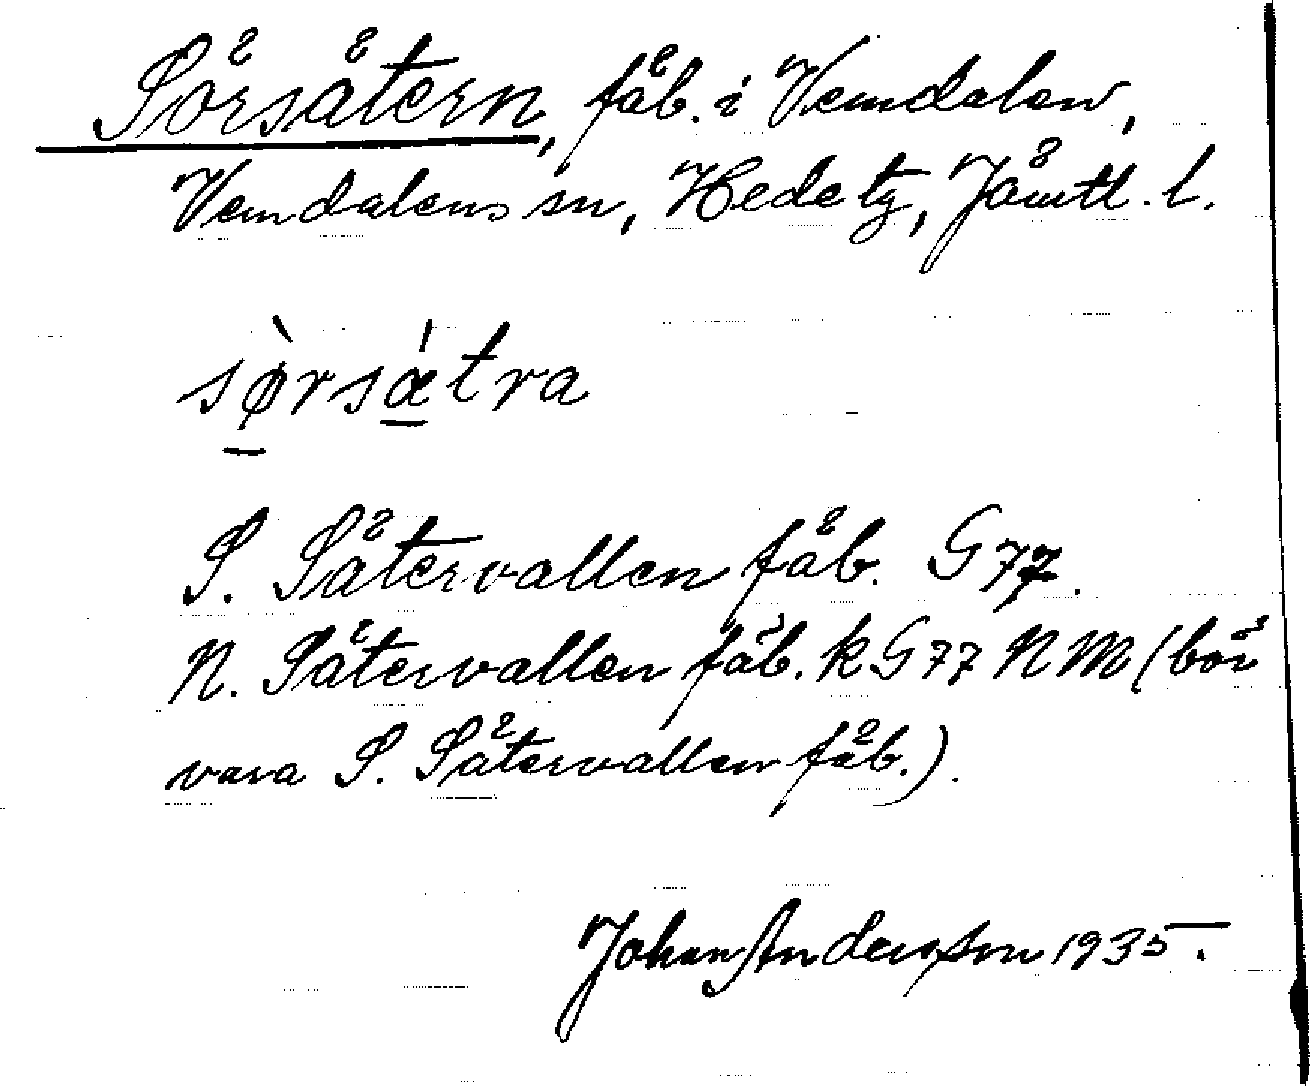 Sörsätern, fäb. i Vemdalen,
Vemdalens sn, Hede tg, Jämtl. l.
sø̀rsǽtra
S. Sätervallen fäb. G77.
N. Sätervallen fäb. k G77 NM (bör
vara S. Sätervallen fäb.).
Johan Andersson 1935.